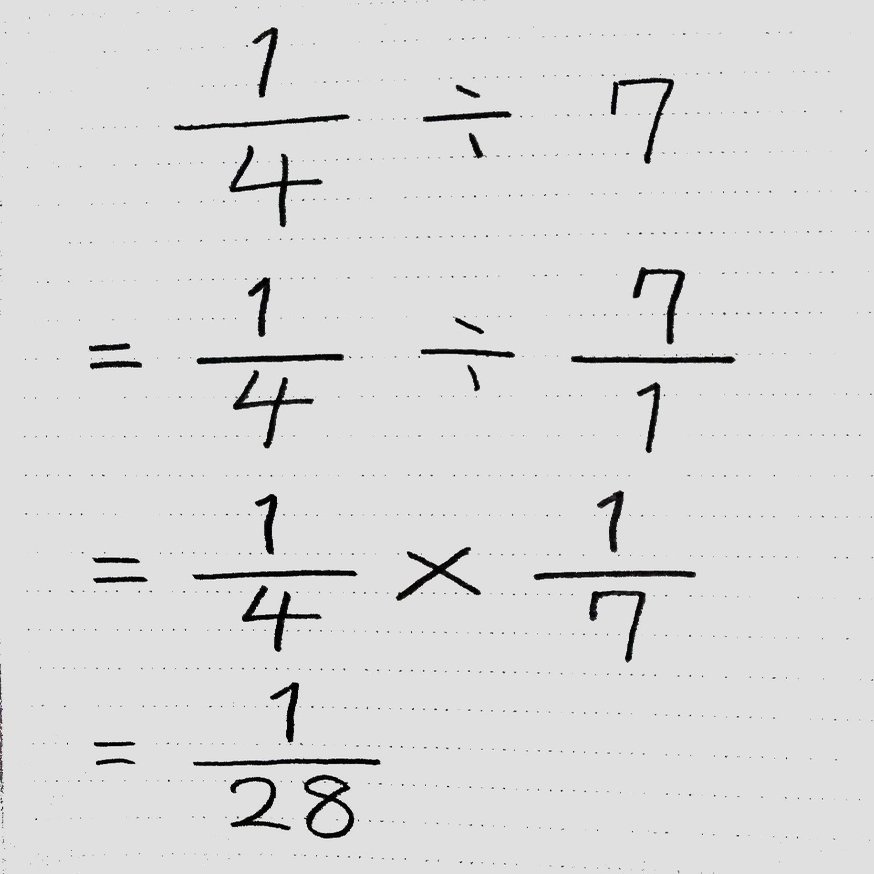 1/4 ÷ 7
= 1/4 ÷ 7/1
= 1/4 × 1/7
= 1/28